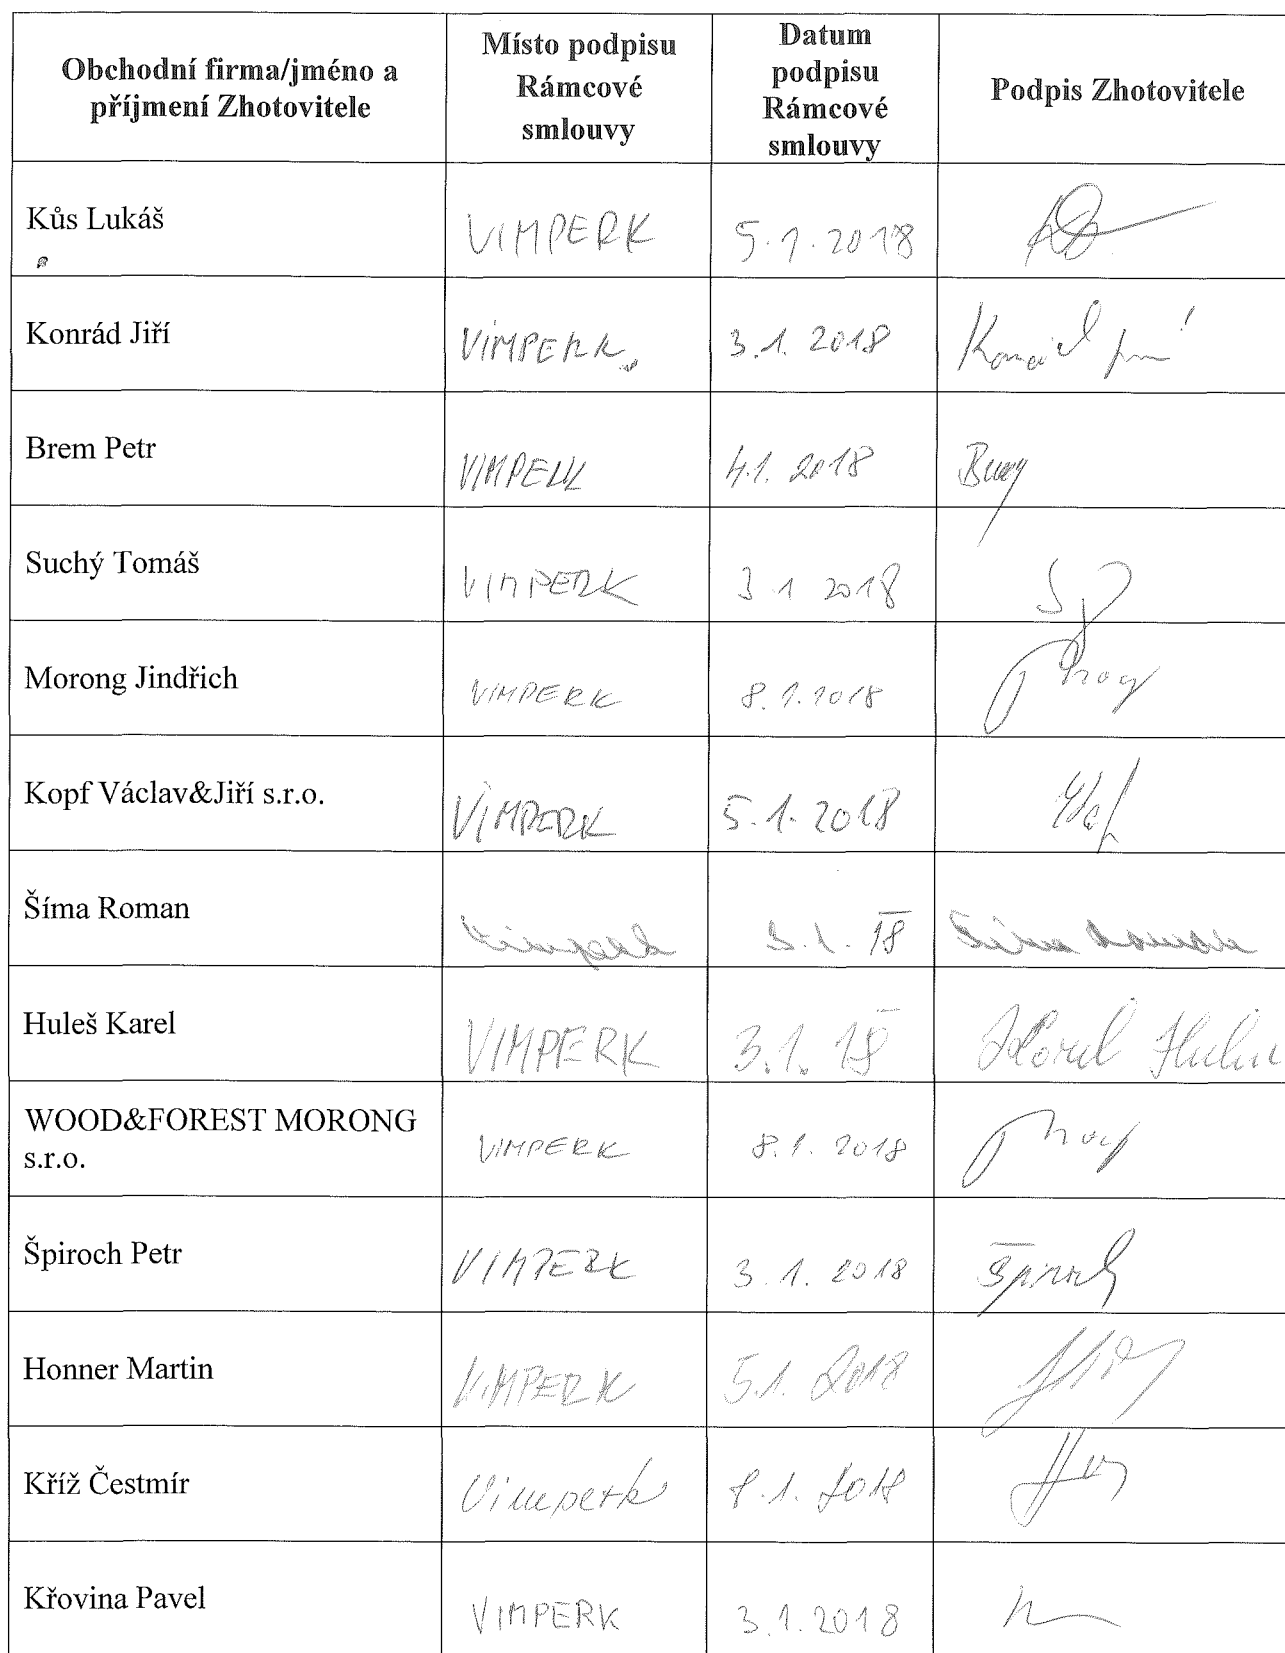 Obchodní firma/jméno a
příjmení Zhotovitele
Místo podpisu
Rámcové
smlouvy
Datum
podpisu
Rámcové
smlouvy
Podpis Zhotovitele
Kůs Lukáš
VIMPERK 5.1.2018
Konrád Jiří
VIMPERK 3.1.2018
Brem Petr
VIMPERK 4.1.2018
Suchý Tomáš
VIMPERK 3 1 2018
Morong Jindřich
VIMPERK 8.1.2018
Kopf Václav&Jiří s.r.o.
VIMPERK 5.1.2018
Šíma Roman
Vimperk 3.1. 18 Šíma Roman
Huleš Karel
VIMPERK 3.1.18 Karel Huleš
WOOD&FOREST MORONG
s.r.o.
VIMPERK 8.1.2018
Špiroch Petr
VIMPERK 3.1.2018 Špiroch
Honner Martin
VIMPERK 5.1.2018
Kříž Čestmír
Vimperk 8.1.2018
Křovina Pavel
VIMPERK 3.1.2018